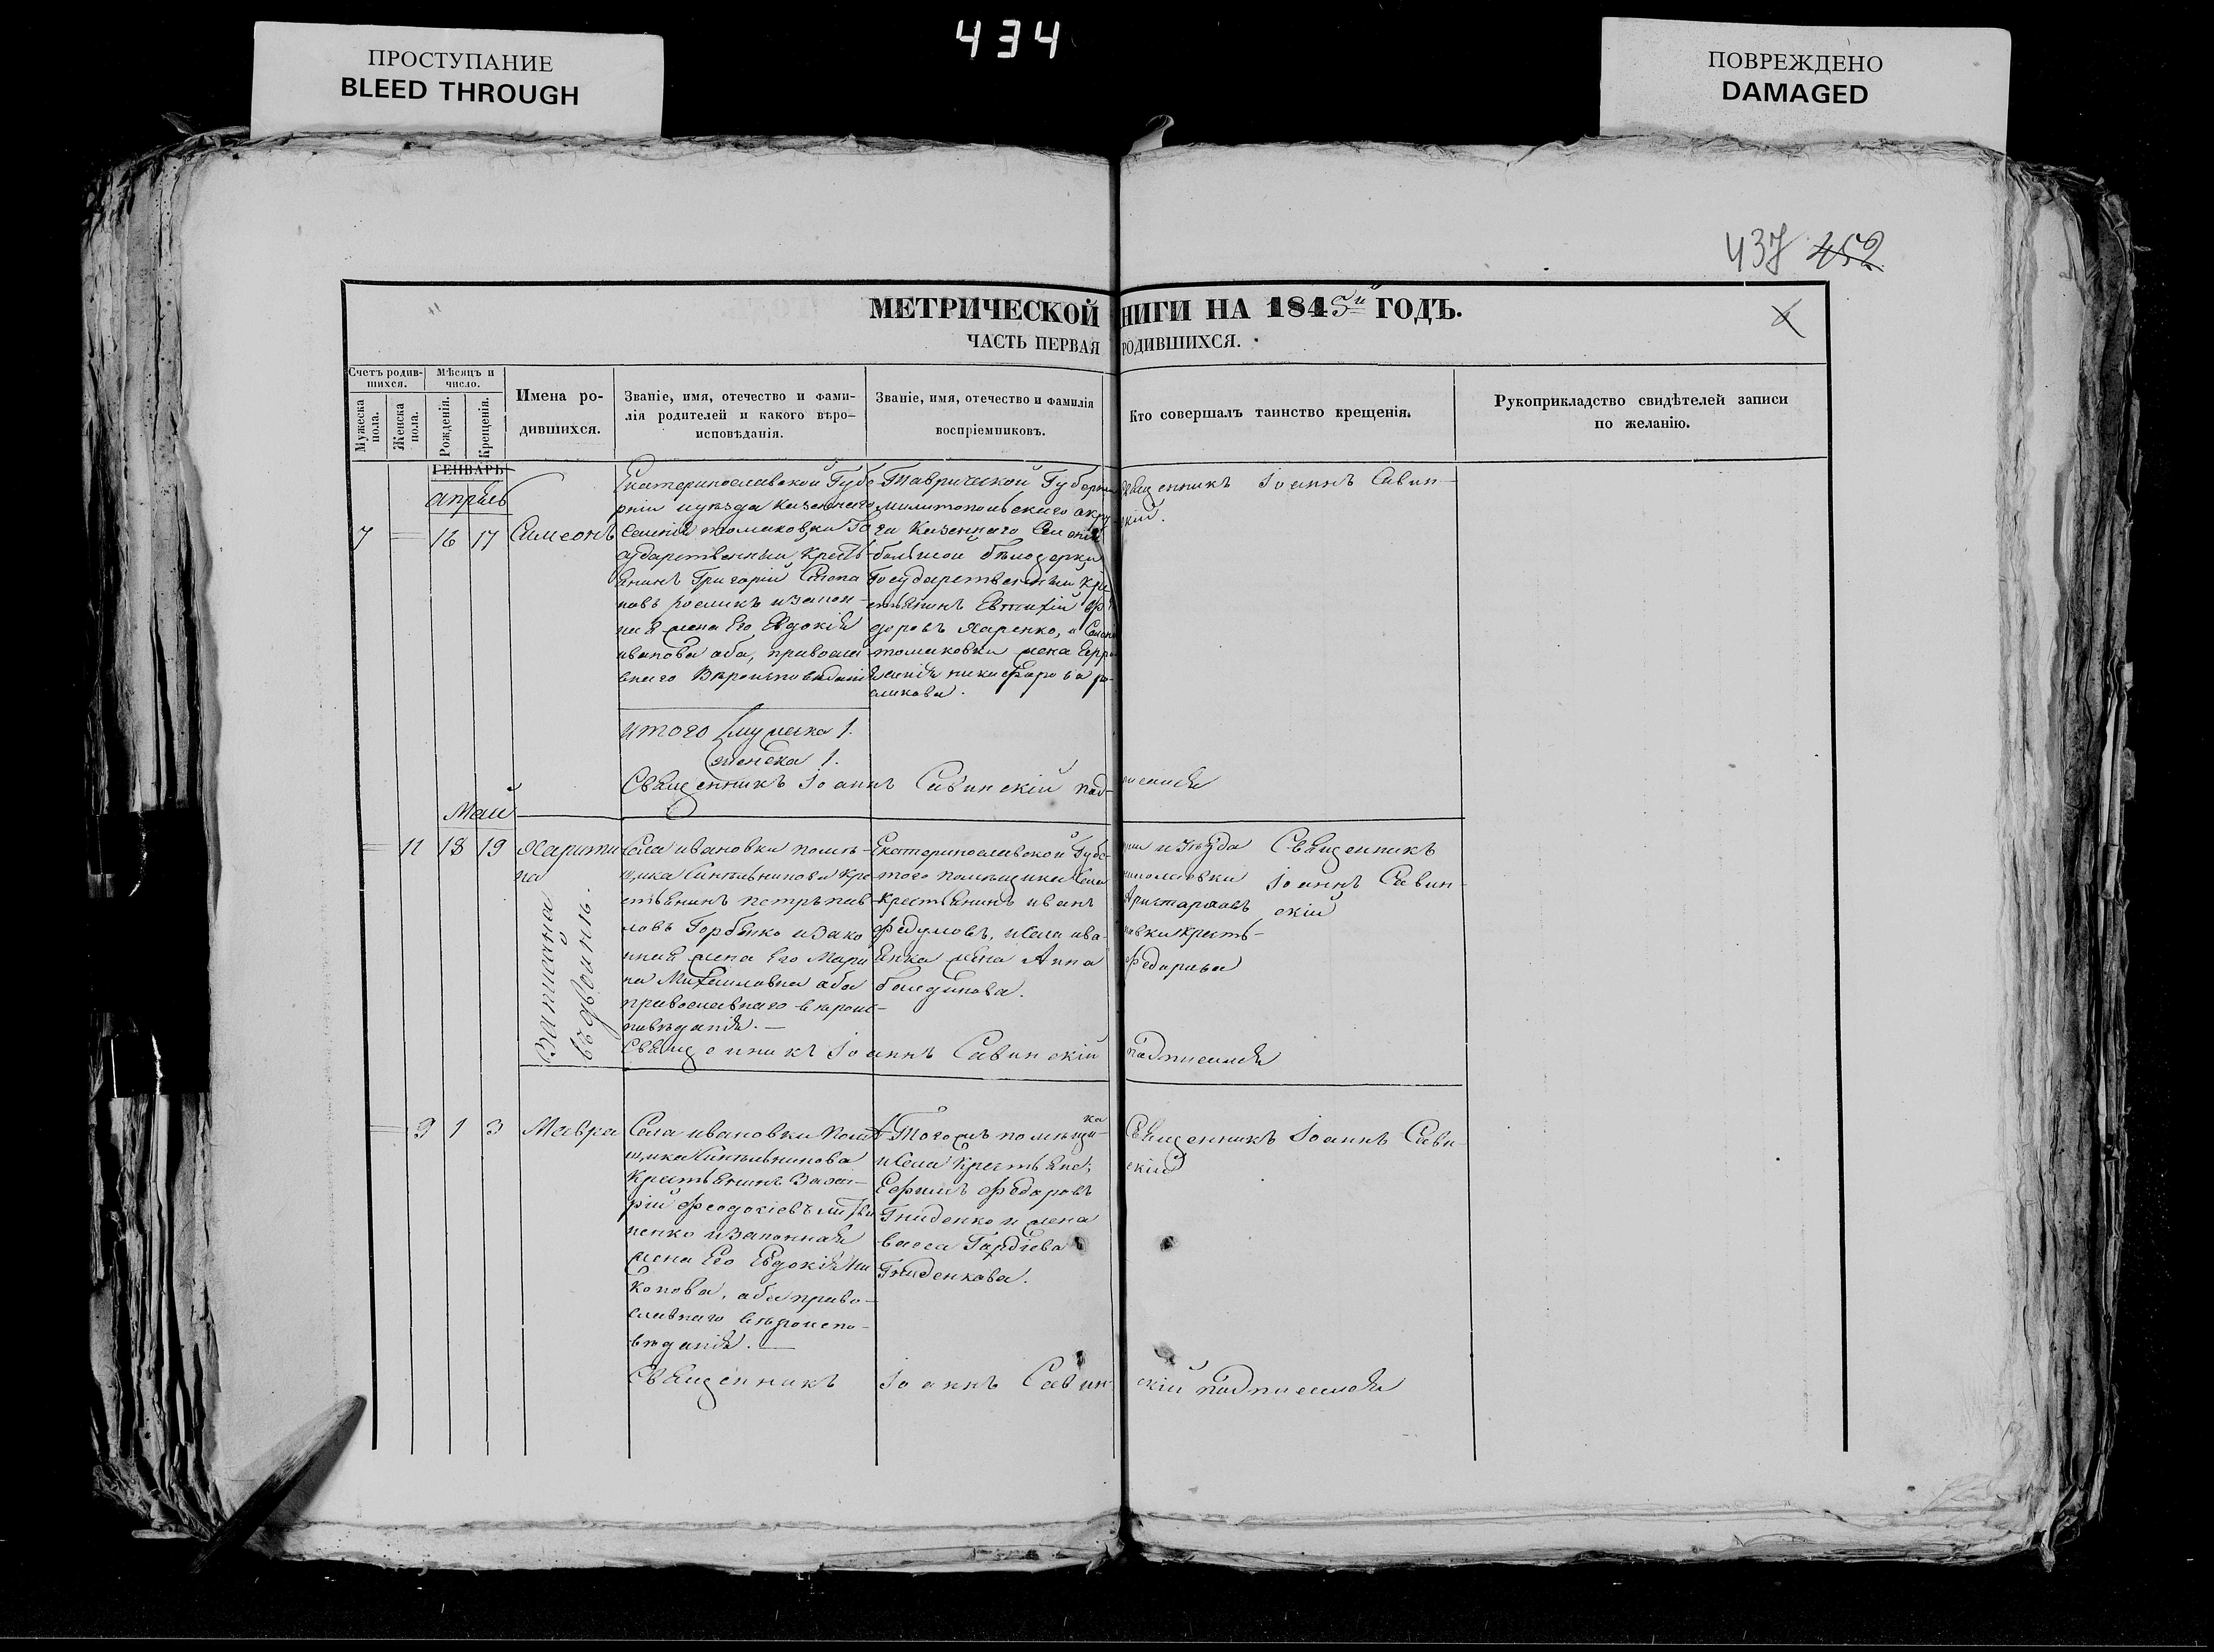 434
ПРОСТУПАНИЕ
BLEED THROUGH
ПОВРЕЖДЕНО
DAMAGED
437 452
МЕТРИЧЕСКОЙ НИГИ НА 1845й ГОДЪ.
ЧАСТЬ ПЕРВАЯ РОДИВШИХСЯ.
Счетъ родив-
шихся.
Мужеска пола.
Женска пола.
Мѣсяцъ и
число.
Рожденія.
Крещенія.
Имена ро-
дившихся.
Званіе, имя, отечество и фами-
лія родителей и какого вѣро-
исповѣданія.
Званіе, имя, отечество и фамилія
воспріемниковъ.
Кто совершалъ таинство крещенія.
Рукоприкладство свидѣтелей записи
по желанію.
ГЕНВАРЬ
апрѣль
7 = 16 17 Симеонъ
Екатеринославской Губе-
рніи уѣзда казеннаго
Селенія томаковки Го
сударственный Кресть
янинъ Григорій Степа
новъ
ная жена Его Евдокія
иванова оба, православ
внаго Вѣроисповѣданія
Таврической Губерніи
милитопольскаго окру
га Казеннаго Селенія
большой бѣлозерки
Государственный Кре
стьянинъ Евтихій Фе
доровъ Харенко, и Селені
томаковки жена Евро
никифорова
Священникъ Іоаннъ Савин-
скій.
итого мужеска 1.
женска 1.
Священникъ Іоаннъ Савинскій подписался
Май
= 11 18 19 Харити
на
Записана
въ двойнѣ.
Села ивановки помѣ-
щика Синельникова Кре
стьянинъ петръ пав
ловъ Горбенко и зако
нная жена Его Мари
на Михайловна оба
православнаго вѣроис-
повѣданія.—
Екатеринославской Губе- рніи и уѣзда
того помѣщика Села николаевки
Крестьянинъ иванъ Аристарховъ
Федумовъ, и села ива новки кресть-
янка жена Анна Федорова
Священникъ
Іоаннъ Савин-
скій
Священникъ Іоаннъ Савинскій подписался
= 9 1 3 Мавра
Села ивановки Помѣ
щика Синельникова
Крестьянинъ Заха-
рій Феодосіевъ
ненко и законная
жена Его Евдокія Ни
конова, оба право-
славнаго вѣроиспо-
вѣданія.—
Тогожъ помѣщи-
ка
и Села Крестьяне;
Ефимъ Федоровъ
Гниденко и жена
васса Гордіева
Гниденкова.
Священникъ Іоаннъ Сави
скій
Священникъ Іоаннъ Савин скій подписался